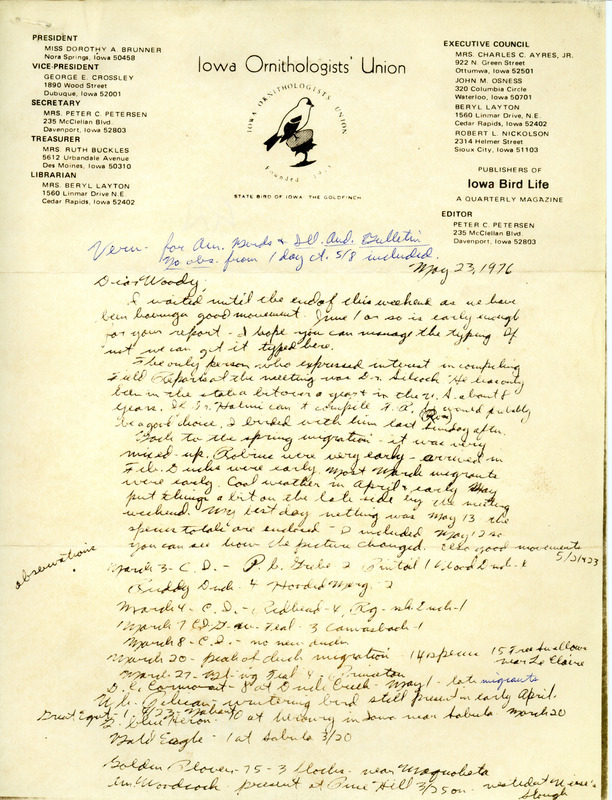 PRESIDENT
MISS DOROTHY A. BRUNNER
Nora Springs, Iowa 50458
VICE-PRESIDENT
GEORGE E. CROSSLEY
1890 Wood Street
Dubuque, Iowa 52001
SECRETARY
MRS. PETER C. PETERSEN
235 McClellan Blvd.
Davenport, Iowa 52803
TREASURER
MRS. RUTH BUCKLES
5612 Urbandale Avenue
Des Moines, Iowa 50310
LIBRARIAN
MRS. BERYL LAYTON
1560 Linmar Drive N.E.
Cedar Rapids, Iowa 52402
Iowa Ornithologists' Union
IOWA ORNITHOLOGISTS UNION
Founded 1923
STATE BIRD OF IOWA THE GOLDFINCH
EXECUTIVE COUNCIL
MRS. CHARLES C. AYRES, JR.
922 N. Green Street
Ottumwa, Iowa 52501
JOHN M. OSNESS
320 Columbia Circle
Waterloo, Iowa 50701
BERYL LAYTON
1560 Linmar Drive, N.E.
Cedar Rapids, Iowa 52402
ROBERT L. NICKOLSON
2314 Helmer Street
Sioux City, Iowa 51103
PUBLISHERS OF
Iowa Bird Life
A QUARTERLY MAGAZINE
EDITOR
PETER C. PETERSEN
235 McClellan Blvd.
Davenport, Iowa 52803
Vern - for Am. Birds & Ill. Aud. Bulletin
No obs. from 1 day ct. 5/8 included.
May 23, 1976
Dear Woody,
I waited until the end of this weekend as we have
been having a good movement. June 1 or so is early enough
for your report - I hope you can manage the typing. If
not we can get it typed here.
The only person who expressed interest in compiling
Field Reports at the meeting was Dr. He has only
been in the state a bit over a year + in the U.S. about 8
years. If Dr. Halmi can't compile F. R. would probably
be a good choice. I birded with him last Sunday after.
Back to the spring migration - it was very
mixed-up. Robins were very early - arrived in
Feb. Ducks were early. Most March migrants
were early. Cool weather in April & early May
put things a bit on the late side by the meeting
weekend. My best day netting was May 13 the
species totals are enclosed - I included May 12 so
you can see how the picture changed. Also good movements
5/21 + 23
observations
March 3 - C.D. - P.b. Grebe 2 Pintail 1 Wood Duck - 8
Ruddy Duck - 4 Hooded Merg. - 2
March 4 - C.D. - Redhead - 4, Rg-nk. Duck - 1
March 7 C.D. G-w. Teal - 3 Canvasback - 1
March 8 - C.D. - no new ducks
March 20 - peak of duck migration - 14 species 15 Tree Swallows
near Le Claire
March 27 - Bl-wg Teal 4 - Princeton
D. C. Cormorant - 8 at Duck Creek - May 1 - late migrants
Wh. Pelican wintering bird still present in early April.
Great Egret 1 4/23 - Nahant
G. Blue Heron 10 at heronry in Iowa near Sabula March 20
Bald Eagle - 1 at Sabula 3/20
Golden Plover - 75 - 3 flocks - near Maquoketa
Am. Woodcock - present at Pine Hill 3/25 on - resident Nurse's
Slough